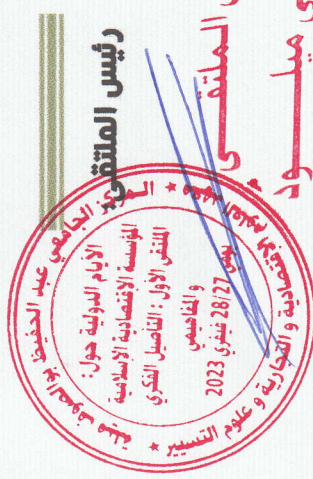 رئيس الملتقى:
المركز الجامعي عبد الحفيظ بوالصوف ميلة
الايام الدولية حول:
المؤسسة الاقتصادية الإسلامية
الملتقى الأول: التأصيل الفكري
والمفاهيمي
يومي 28/27 فيفري 2023
معهد العلوم الاقتصادية والتجارية و علوم التسيير
الملتقى